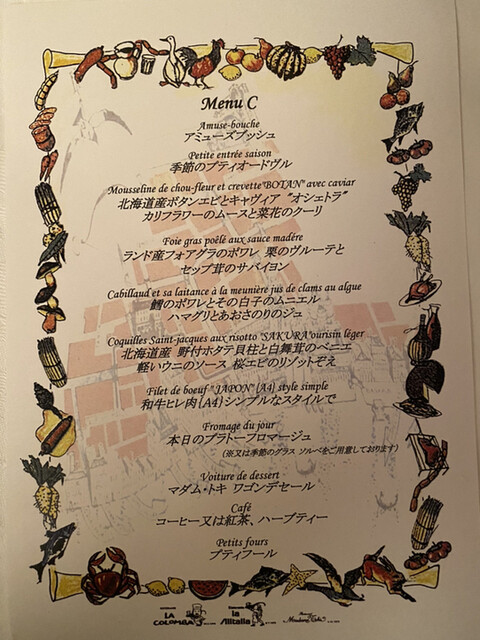 Menu C
Amuse-bouche
アミューズブッシュ
Petite entrée saison
季節のプティオードヴル
Mousseline de chou-fleur et crevette"BOTAN" avec caviar
北海道産ボタンエビとキャヴィア "オシェトラ"
カリフラワーのムースと菜花のクーリ
Foie gras poêlè aux sauce madère
ランド産フォアグラのポワレ 栗のヴルーテと
セップ茸のサバイヨン
Cabillaud et sa laitance à la meunière jus de clams au algue
鱈のポワレとその白子のムニエル
ハマグリとあおさのりのジュ
Coquilles Saint-jacques aux risotto "SAKURA"ourisin lèger
北海道産 野付ホタテ貝柱と白舞茸のベニエ
軽いウニのソース 桜エビのリゾットぞえ
Filet de boeuf "JAPON" {A4} style simple
和牛ヒレ肉{A4}シンプルなスタイルで
Fromage du jour
本日のプラトーフロマージュ
(※又は季節のグラス ソルベをご用意しております)
Voiture de dessert
マダム・トキ ワゴンデセール
Café
コーヒー又は紅茶、ハーブティー
Petits fours
プティフール
LA COLOMBA
la Alitalia
Madame Toki